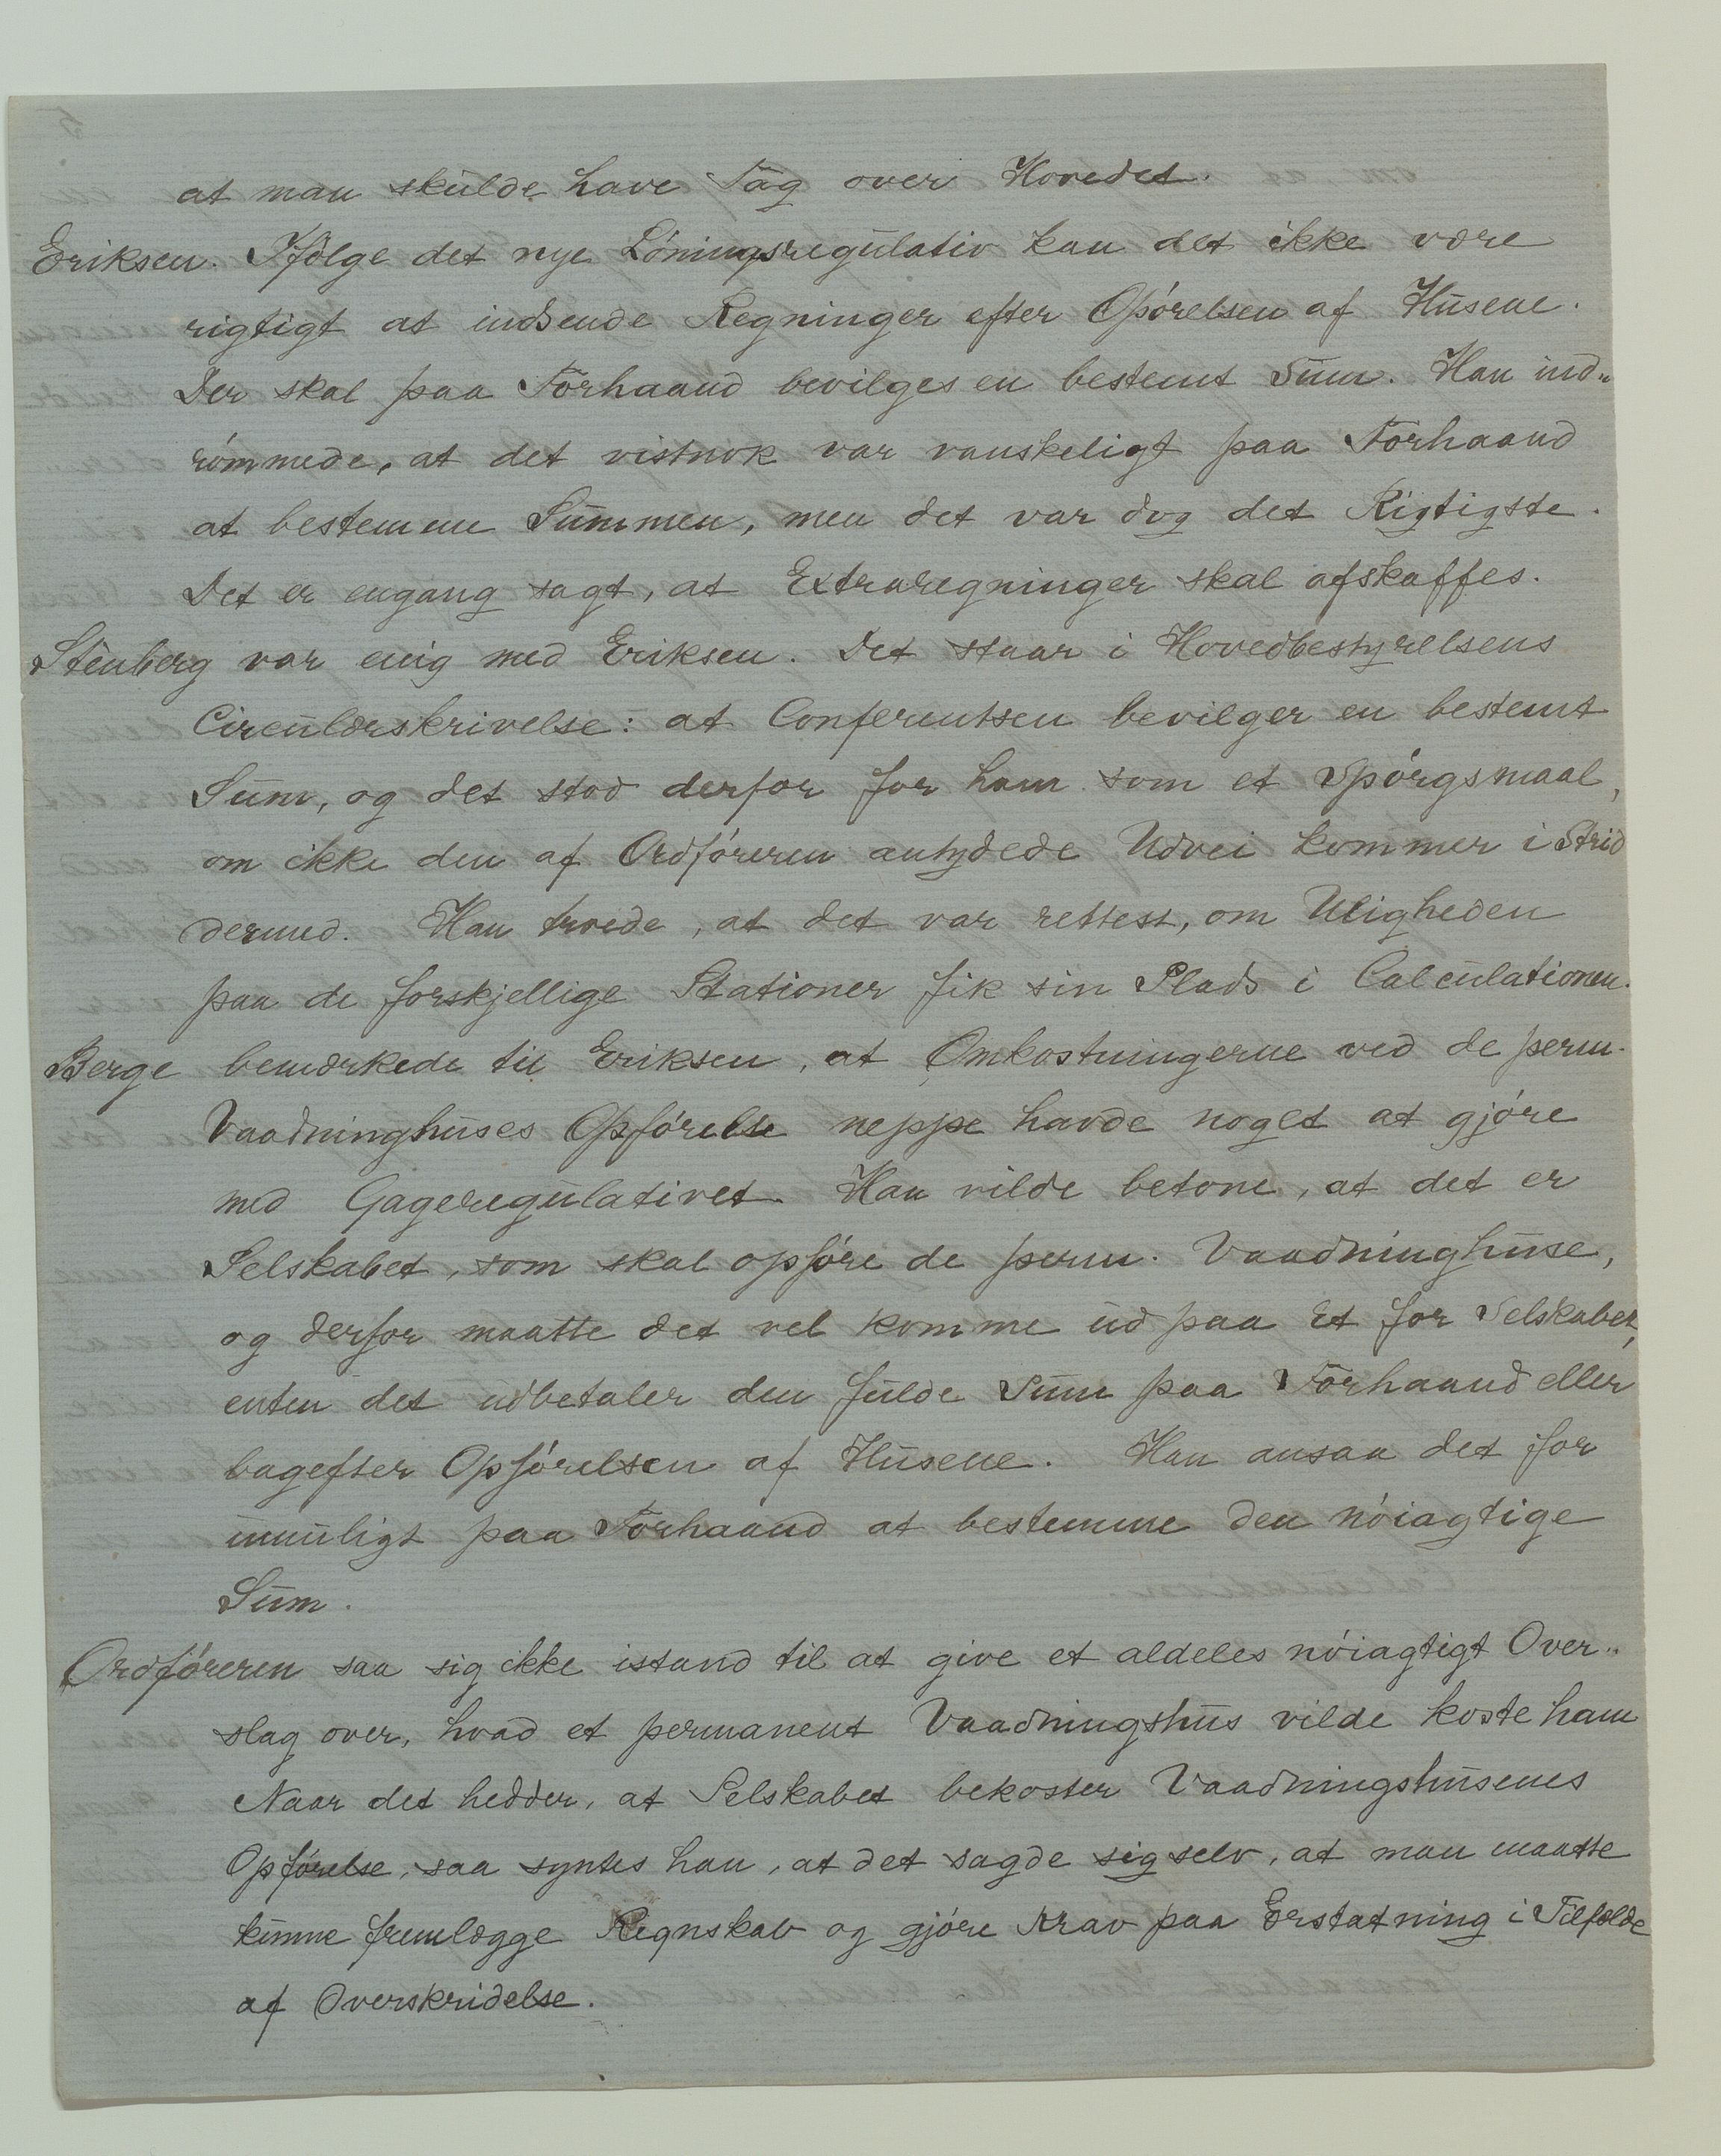 at man skulde have Tag over Hovedet.
Eriksen. Ifólge det nye Lóningsregulativ kan det ikke være
rigtigt at indsende Regninger efter Opórelsen af Husene.
Der skal paa Forhaand bevilges en bestemt Sum. Han ind-
rómmede, at det vistnok var vanskeligt paa Forhaand
at bestemme Summen, men det var dog det Rigtigste.
Det er engang sagt, at Extraregninger skal afskaffes.
Stenberg var enig med Eriksen. Det staar i Hovedbestyrelsens
Circulærskrivelse: at Conferentsen bevilger en bestemt
Sum, og det stod derfor for ham som et Spórgsmaal,
om ikke den af Ordfóreren antydede Udvei kommer i Strid
dermed. Han troede, at det var rettest, om Uligheden
paa de forskjellige Stationer fik sin Plads i Calculationen.
Berge bemærkede til Eriksen, at Omkostningerne ved de perm.
Vaadninghuses Opfórelse neppe havde noget at gjóre
med Gageregulativet. Han vilde betone, at det er
Selskabet, som skal opfóre de perm. Vaadninghuse,
og derfor maatte det vel komme ud paa Et for Selskabet,
enten det udbetaler den fulde Sum paa Forhaand eller
bagefter Opfórelsen af Husene. Han ansaa det for
umuligt paa Forhaand at bestemme den nóiagtige
Sum.
Ordfóreren saa sig ikke istand til at give et aldeles nóiagtigt Over-
slag over, hvad et permanent Vaadningshus vilde koste ham
Naar det hedder, at Selskabet bekoster Vaadningshusenes
Opfórelse, saa syntes han, at det sagde sig selv, at man maatte
kunne fremlægge Regnskab og gjóre Krav paa Erstatning i Tilfælde
af Overskridelse.